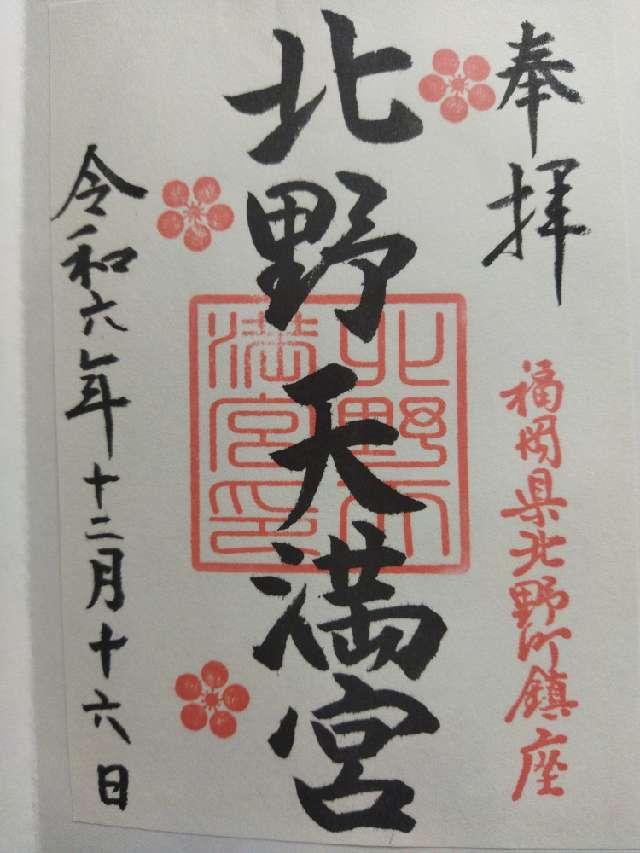 奉拝
福岡県北野町鎮座
北野天満宮
北野天
満宮印
令和六年十二月十六日